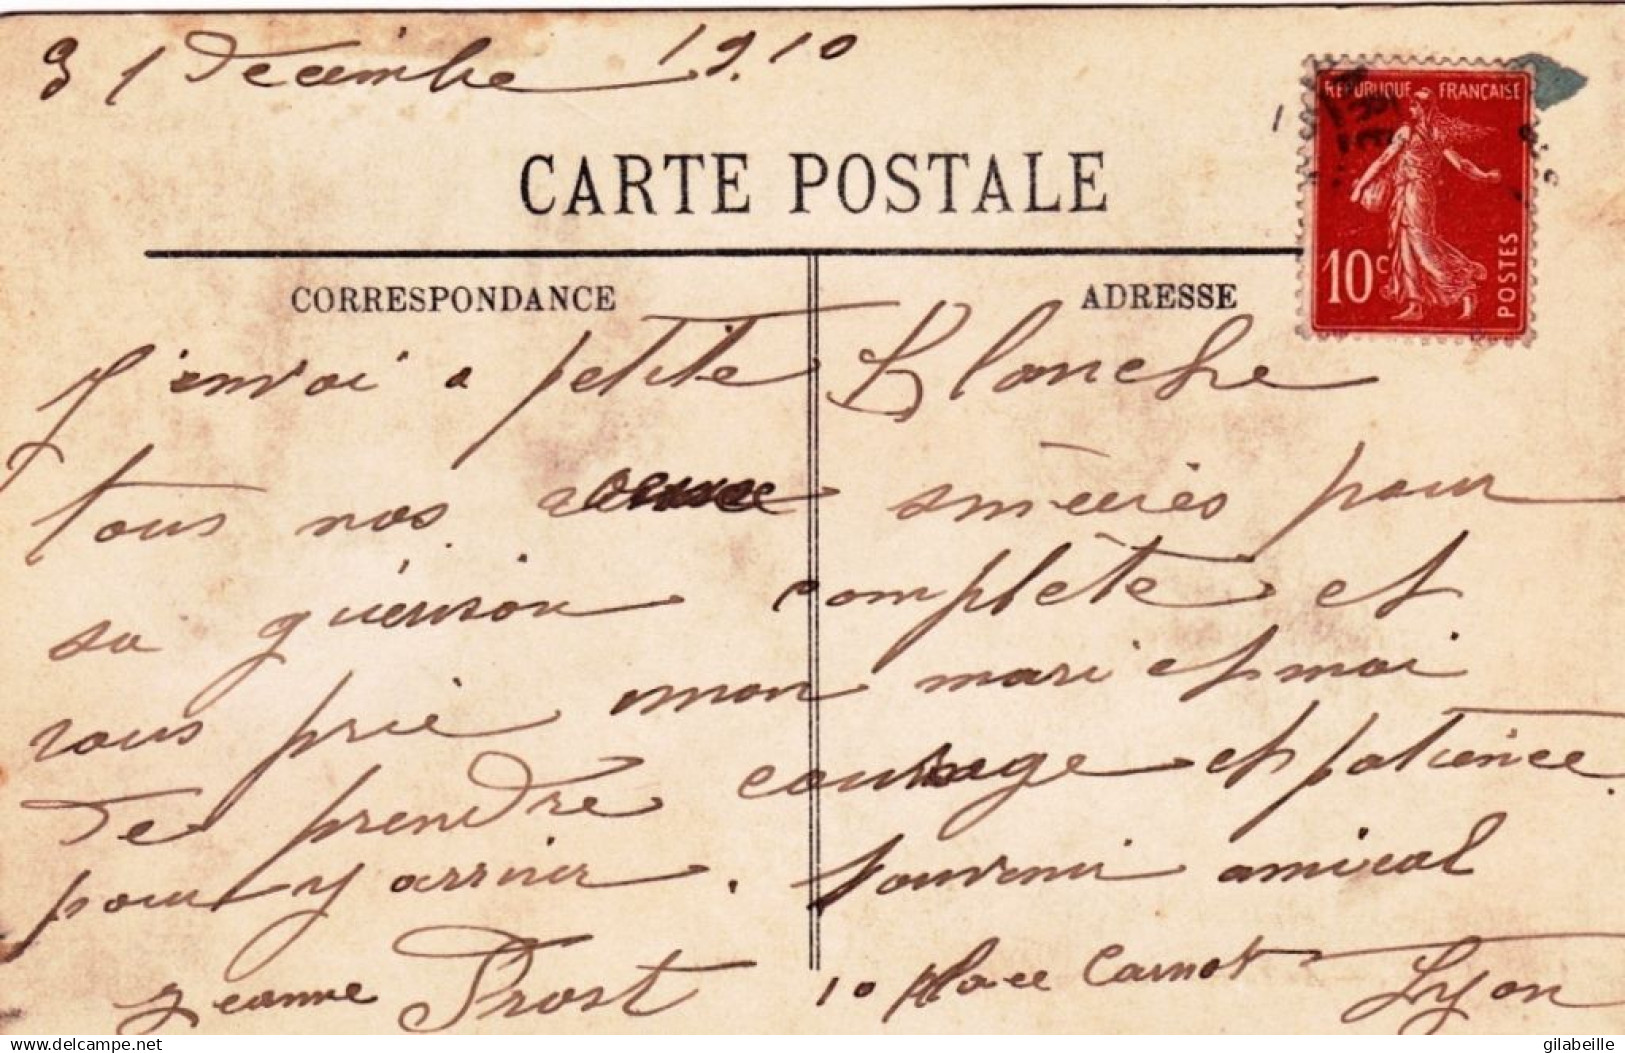 31 Decembre 1910
REPUBLIQUE FRANÇAISE
10c
POSTES
CARTE POSTALE
CORRESPONDANCE
ADRESSE
J'envoi a petite Blanche
tous nos sincères pour
sa guérison complète et
vous prie mon mari et moi
de prendre courage et patience
pour y arriver. Souvenir amical
Jeanne Prost 10 place Carnot Lyon
www.delcampe.net
gilabeille